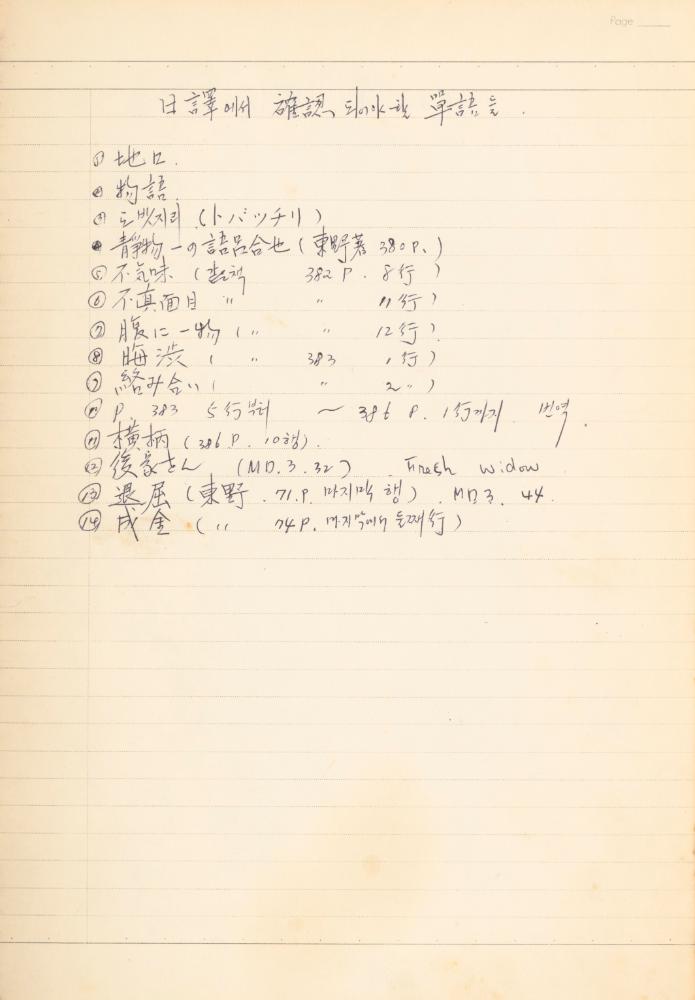 Page
日譯에서 確認되어야 할 單語들.
① 地口.
② 物語
③ 도밧지리 (トバッチリ)
④ 靜物一の語呂合せ (東野著 380P.)
⑤ 不気味 ( 382 P. 8行)
⑥ 不真面目 〃 〃 11行)
⑦ 腹に一物 (〃 〃 12行)
⑧ 晦渋 ( 〃 383 1行)
⑨ 絡み合い ( 〃 2〃)
⑩ P. 383 5行부터 ~ 386 P. 1行까지 번역.
⑪ 横柄 (386P. 10행).
⑫ 後家さん (MD.3.32) . Fresh widow
⑬ 退屈 (東野 .71.P. 마지막 행) . MD3. 44.
⑭ 成金 (〃 74P. 마지막에서 둘째行)